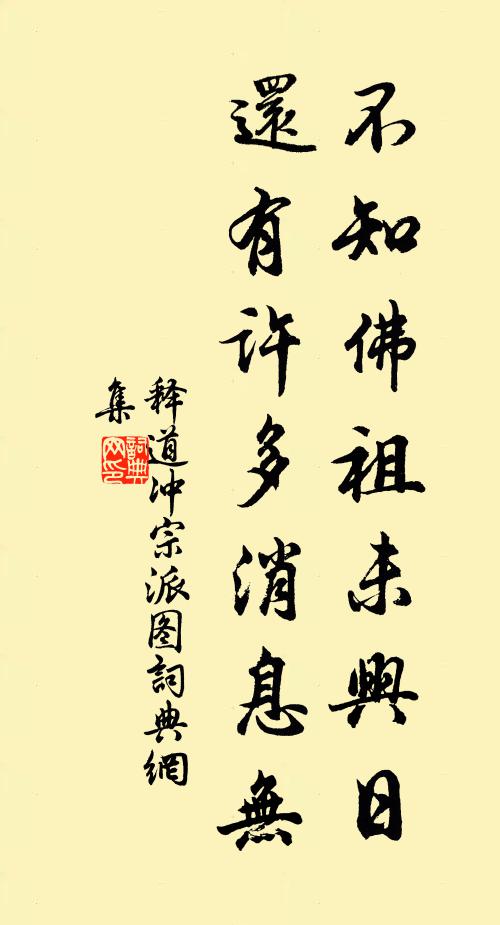 不知佛祖未興日
還有許多消息無
释道冲宗派图詞典網
集
詞典網印